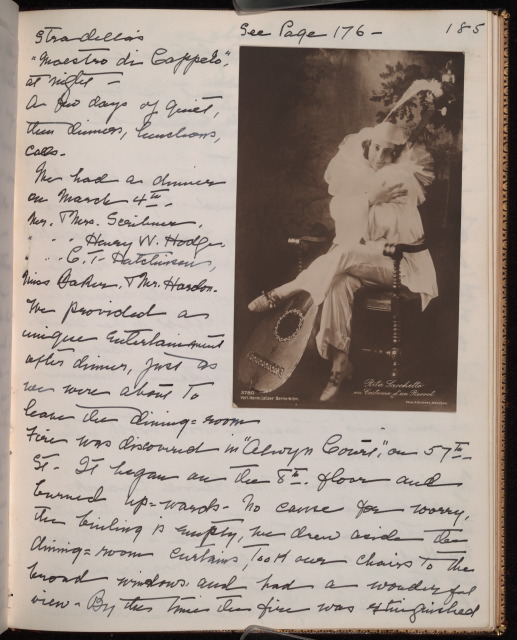 See Page 176 - 185
Stradella's
"Maestro di Cappela",
at night -
A few days of quiet,
then dinners, luncheons,
calls.
We had a dinner
on March 4th,
Mr. & Mrs. Scribner,
" " Henry W. Hodge
" " C. T. Hutchinson,
Miss Baker, & Mr. Hardon.
We provided a
unique entertainment
after dinner, just as
we were about to
leave the dining=room
Fire was discovered in "Alwyn Court", on 57th
St. It began on the 8th. floor and
burned up=wards. No cause for worry,
the building is empty, we drew aside the
dining=room curtains, took our chairs to the
broad windows and had a wonderful
view - By the time the fire was extinguished
3780
Verl. Herm. Leiser Berlin-Wilm.
Rita Sacchetto
im Costume d'un Pierrot